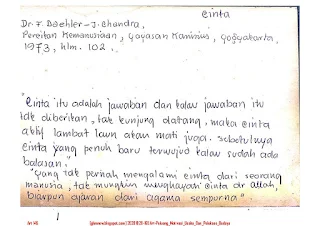 Cinta
Dr. F. Dachler - J. Chandra,
Percikan Kemanusiaan, Yayasan Kanisius, Yogyakarta,
1973, hlm. 102.
"Cinta itu adalah jawaban dan kalau jawaban itu
tak diberikan, tak kunjung datang, maka cinta
akhir lambat laun akan mati juga. Sebetulnya
cinta yang penuh baru terwujud kalau sudah ada
balasan."
"yang tak pernah mengalami cinta dari seorang
manusia, tak mungkin menghayati cinta dr Allah,
biarpun ajaran dari agama sempurna"